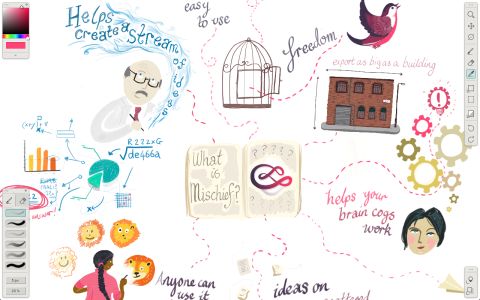 easy
to use
Helps
create a stream
of ideas
freedom
export as big as a building
R 272xG
√de466a
What
is
Mischief?
helps your
brain cogs
work
Anyone can
use it
ideas on